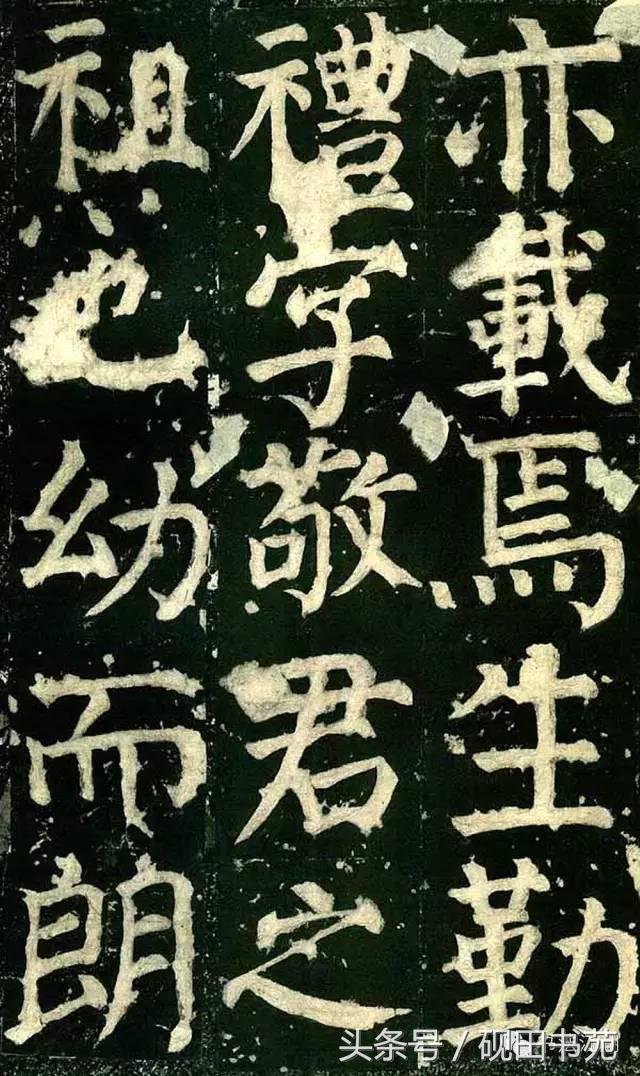 亦載焉生勤
禮字敬君之
祖也幼而朗
头条号／砚田书苑